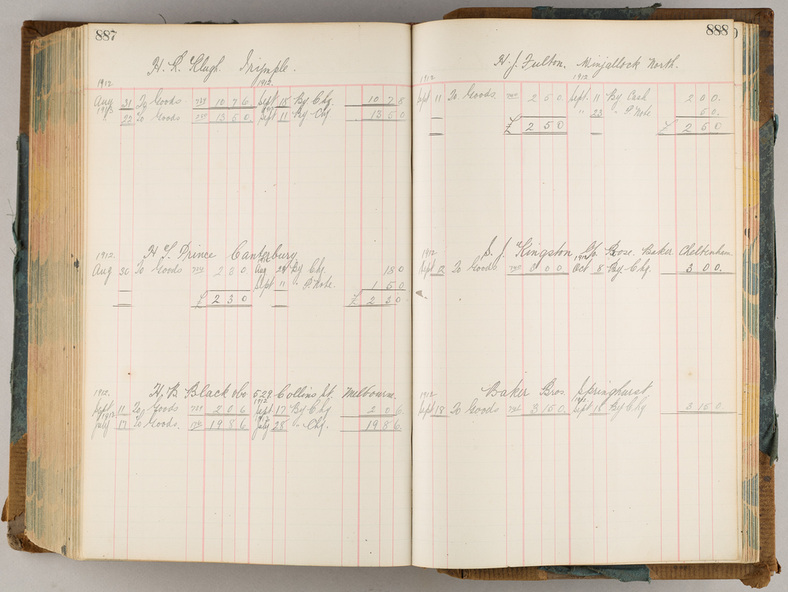 887
H. K. Klugh. Irymple.
1912. 1912
Aug 31 To Goods 737 10 7 6 Sept 18 By Chq. 10 7 6
23 To Goods 737 13 6 0 Sept 11 By Chq 13 6 0
1912. H. J. Prince Canterbury
Aug 30 To Goods 2 3 0 Aug 29 By Chq. 18 0
Sept 11 " P. Note. 1 5 0
£ 2 3 0 £ 2 3 0
1912. H. B. Black 529 Collins St. Melbourne.
Sept 11 To Goods 737 2 0 6 Sept 17 By Chq 2 0 6
July 17 To Goods. 19 8 6 July 25 " Chq. 19 8 6
888
H. J. Fulton. Minjallock North.
1912 1912
Sept 11 To Goods 2 5 0 Sept. 11 By Cash 2 0 0.
" 23 " P Note 5 0.
£ 2 5 0 £ 2 5 0
1912 S. J. Kingston Bros. Baker Cheltenham.
Sept 2 To Goods 3 0 0 Oct 8 By Chq. 3 0 0.
1912 Baker Bros Springhurst
Sept 18 To Goods 3 15 0. Sept 18 By Chq 3 15 0.